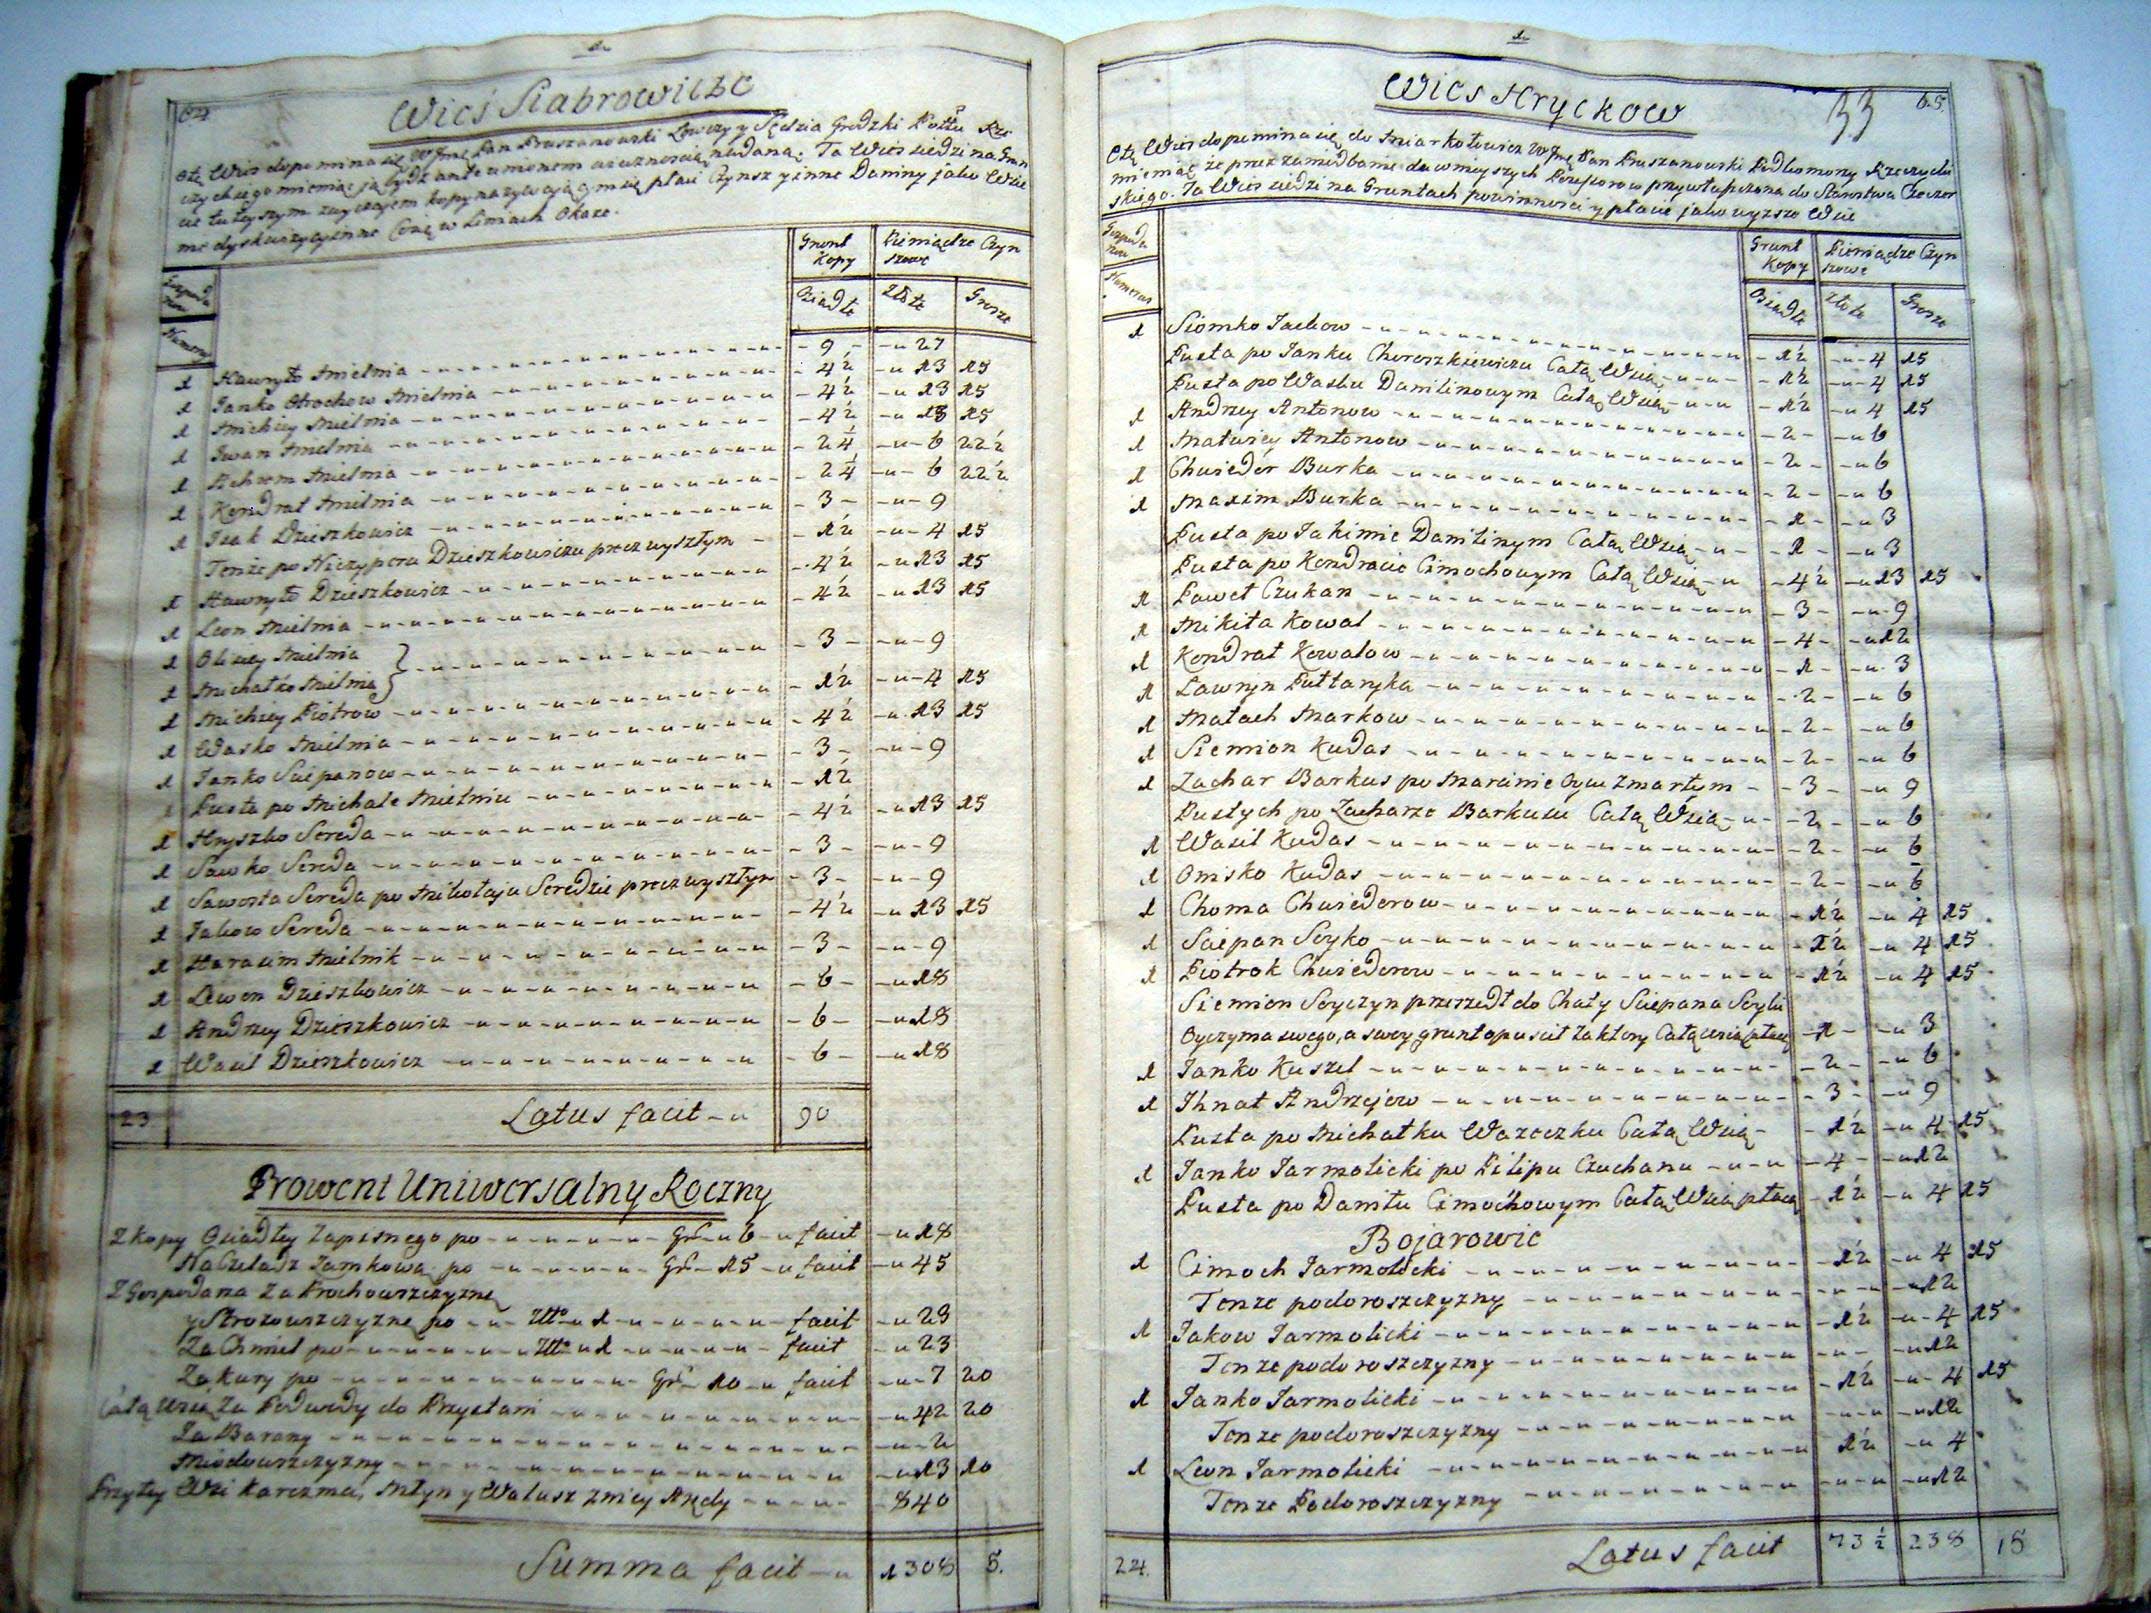 64
Wieś Siabrowicze
O tę Wieś dopomina się WJmć Pan Pruszanowski Łowczy y Sędzia Grodzki Pottu Rze
czyckiego mieniąc ją bydz antecessorom wiecznoscią nadaną. Ta Wieś siedzi na Grun
cie tuteyszym zwyczajem kopy nazywającym się płaci Czynsz y inne Daniny jako Wsie
Gospoda
rzow
Numerus
Grunt
Kopy
Pieniądze Czyn
szowe
Osiadłe
Złote
Grosze
1 Hawryło Mielnia 9 27
1 Janko Otrochow Mielnia 4½ 13 15
1 Michey Mielnia 4½ 13 15
1 Iwan Mielnia 4½ 13 15
1 Achrem Mielnia 2¼ 6 22½
1 Kondrat Mielnia 2¼ 6 22½
1 Izak Dzieszkowicz 3 9
Tenże po Niczypora Dzieszkowiczu precz wyszłym 1½ 4 15
1 Hawryło Dzieszkowicz 4½ 13 15
1 Leon Mielnia 4½ 13 15
1 Olisiey Mielnia
1 Michałko Mielnia 3 9
1 Michey Piotrow 1½ 4 15
1 Wasko Mielnia 4½ 13 15
1 Janko Sciepanow 3 9
Pusta po Michale Mielniu 1½
1 Hryszko Sereda 4½ 13 15
1 Sawko Sereda 3 9
1 Sawosta Sereda po Mikołaju Seredzie precz wyszłym 3 9
1 Jakow Sereda 4½ 13 15
1 Harasim Mielnik 3 9
1 Lewon Dzieszkowicz 6 18
1 Andrey Dzieszkowicz 6 18
1 Wasil Dzieszkowicz 6 18
23 Latus facit 90
Prowent Uniwersalny Roczny
Z kopy Osiadłey Zapisnego po Gr 6 facit 18
Na Czeladz Zamkową po Gr 15 facit 45
Z Gospodarza Za Prochowszczyznę
y Strozowszczyznę po Złło 1 facit 23
Za Chmiel po Złło 1 facit 23
Za kury po Gr 10 facit 7 20
Całą Wsią Za Podwody do Przystani 42 20
Za Barany 2
Miodowszczyzny 13 10
Przy tey Wsi Karczma, Młyn y Walusz z niey Arędy 840
Summa facit 1308 5.
65
33
Wieś Hryckow
O tę Wieś dopomina się do Miarkołowicz WJmć Pan Pruszanowski Podkomorzy Rzeczycki
mieniąc że przez zaniedbanie dawnieyszych Possessorow przywłaszczona do Starostwa Czeczer
skiego. Ta Wieś siedzi na Gruntach powinnosci y płacie jako wyższe Wsie
Gospoda
rzow
Numerus
Grunt
Kopy
Pieniądze Czyn
szowe
Osiadłe
Złote
Grosze
1 Siomko Jackow 1½ 4 15
Pusta po Janku Choroszkiewiczu Całą Wsią 1½ 4 15
Pusta po Wasku Danilinowym Całą Wsią 1½ 4 15
1 Andrey Antonow 2 6
1 Matwiey Antonow 2 6
1 Chwiedor Burka 2 6
1 Maxim Burka 1 3
Pusta po Jakimie Danilinym Całą Wsią 1 3
Pusta po Kondracie Cimochowym Całą Wsią 4½ 13 15
1 Paweł Czukan 3 9
1 Mikita Kowal 4 12
1 Kondrat Kowalow 1 3
1 Ławryn Pułtaryka 2 6
1 Małach Markow 2 6
1 Siemion Kudas 2 6
1 Zachar Barkus po Marcinie Oycu Zmarłym 3 9
Pustych po Zacharze Barkusu Całą Wsią 2 6
1 Wasil Kudas 2 6
1 Omisko Kudas 2 6
1 Choma Chwiedorow 1½ 4 15
1 Sciepan Soyko 1½ 4 15
1 Piotrok Chwiedorow 1½ 4 15
Siemion Soyczyn przeszedł do Chaty Sciepana Soyki
Oyczyma swego, a swoy grunt opuscił za ktory Całą wsią płacą 1 3
1 Janko Kuszel 2 6
1 Ihnat Andrzejow 3 9
Pusta po Michałku Wazeczku Całą Wsią 1½ 4 15
1 Janko Jarmolicki po Pilipu Czuchanu 4 12
Pusta po Daniłu Cimochowym Całą Wsią płacą 1½ 4 15
Bojarowie
1 Cimoch Jarmolicki 1½ 4 15
Tenze podoroszczyzny 12
1 Jakow Jarmolicki 1½ 4 15
Tenze podoroszczyzny 12
1 Janko Jarmolicki 1½ 4 15
Tenze podoroszczyzny 12
1 Leon Jarmolicki 1½ 4
Tenze Podoroszczyzny 12
24. Latus facit 73½ 238 15